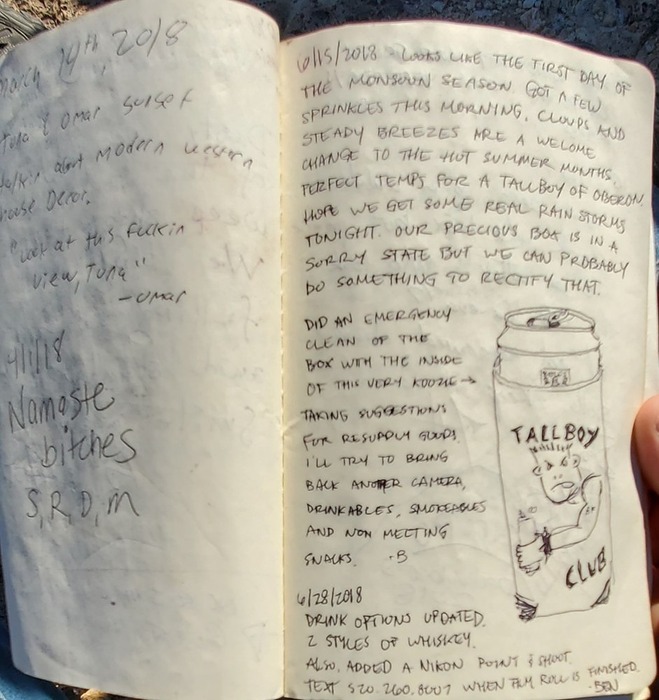 March 14th, 2018
Tuna & Omar sunset
talkin about modern western
house Decor.
"Look at this fuckin
view, Tuna"
- omar
4/1/18
Namaste
bitches
S, R, D, M
6/15/2018 - LOOKS LIKE THE FIRST DAY OF
THE MONSOON SEASON. GOT A FEW
SPRINKLES THIS MORNING, CLOUDS AND
STEADY BREEZES ARE A WELCOME
CHANGE TO THE HOT SUMMER MONTHS.
PERFECT TEMPS FOR A TALLBOY OF OBERON.
HOPE WE GET SOME REAL RAIN STORMS
TONIGHT. OUR PRECIOUS BOX IS IN A
SORRY STATE BUT WE CAN PROBABLY
DO SOMETHING TO RECTIFY THAT.
DID AN EMERGENCY
CLEAN OF THE
BOX WITH THE INSIDE
OF THIS VERY KOOZIE →
TAKING SUGGESTIONS
FOR RESUPPLY GOODS
I'LL TRY TO BRING
BACK ANOTHER CAMERA,
DRINKABLES, SMOKEABLES
AND NON MELTING
SNACKS. -B
TALLBOY
CLUB
6/28/2018
DRINK OPTIONS UPDATED.
2 STYLES OF WHISKEY.
ALSO, ADDED A NIKON POINT & SHOOT.
TEXT 520.260.8007 WHEN FILM ROLL IS FINISHED.
-BEN